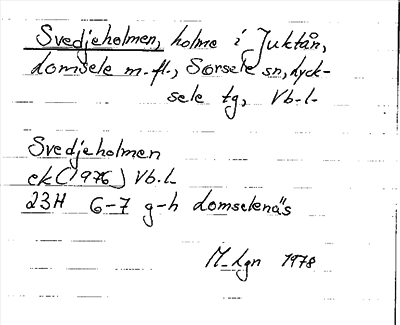 Svedjeholmen, holme i Juktån,
Lomsele m.fl., Sorsele sn, Lyck-
sele tg, Vb.l.
Svedjeholmen
ek (1976) Vb.l.
23H 6-7 g-h Lomselenäs
M. Lgn 1978